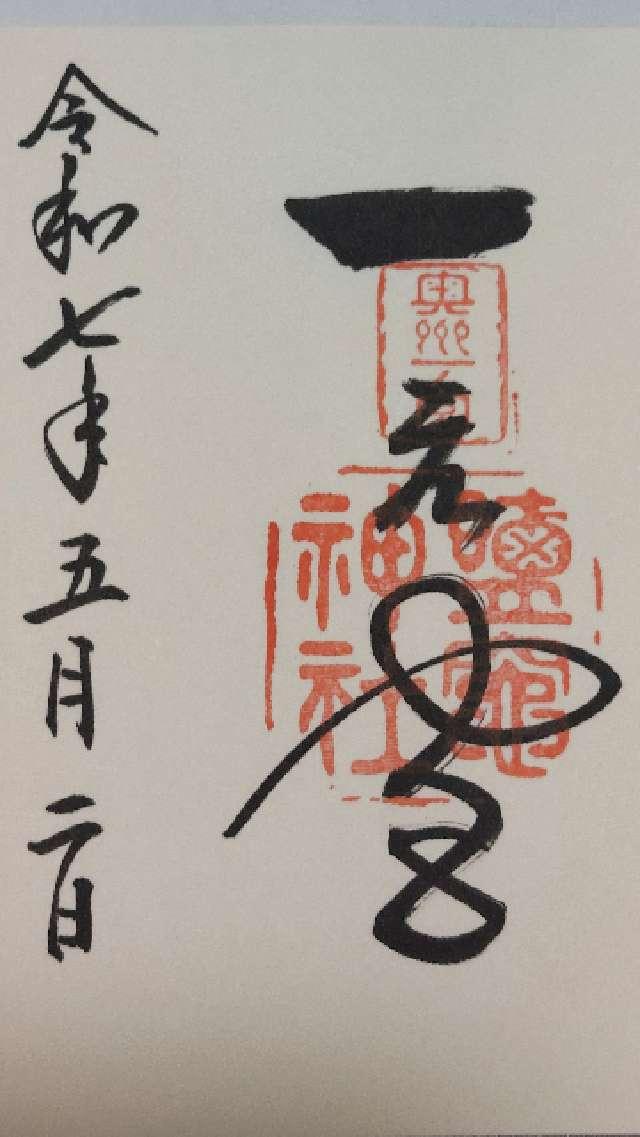 一宮
奥州一宮
鹽竈
神社
令和七年五月二日